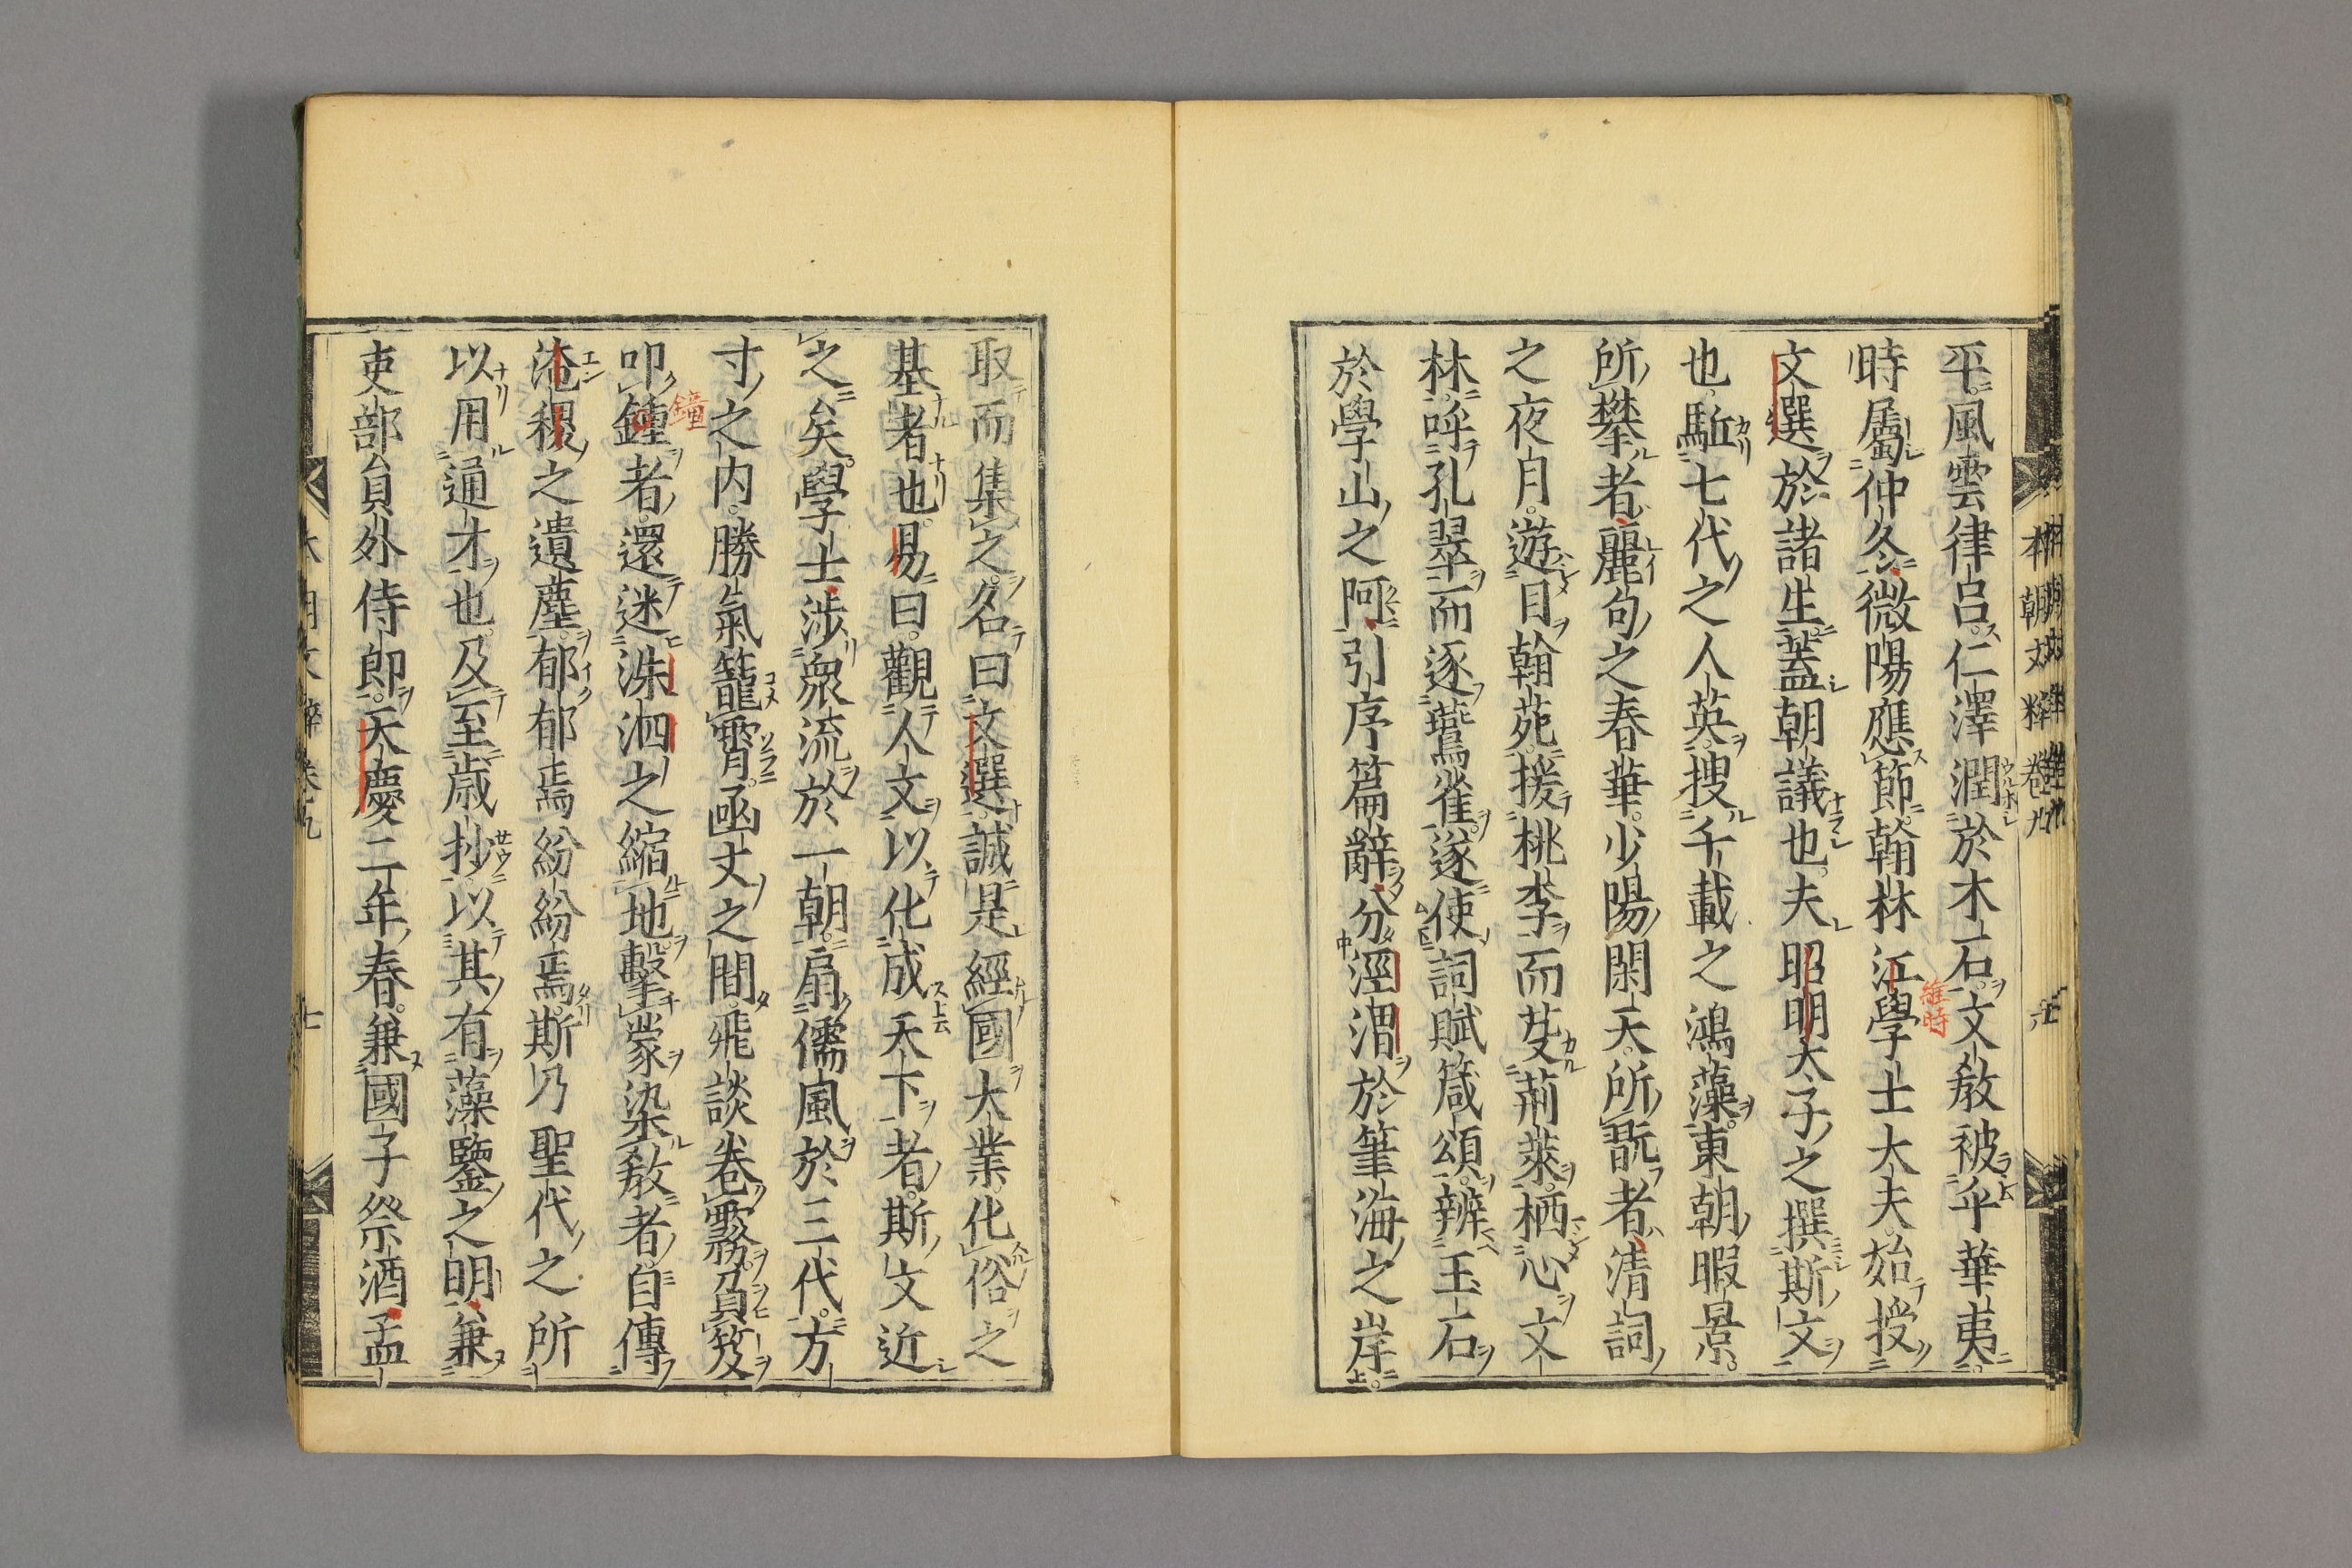 平風雲律呂仁澤潤於木石文教被乎華夷
時屬仲冬微陽應節翰林江學士大夫始授
維時
文選於諸生蓋朝議也夫昭明太子之撰斯文
也駈七代之人英搜千載之鴻藻東朝暇景
所攀者麗句之春華少陽閑天所翫者清詞
之夜月遊目翰苑援桃李而芟荊萊栖心文
林呼孔翠而逐鷰雀遂使詞賦箴頌辨玉石
於學山之阿引序篇辭分涇渭於筆海之岸
本朝文粹卷九
取而集之名曰文選誠是經國大業化俗之
基者也易曰觀人文以化成天下者斯文近
之矣學士涉衆流於一朝扇儒風於三代方
寸之内勝氣籠霄凾丈之間飛談卷霧負笈
叩鍾者還迷洙泗之縮地擊蒙染教者自傳
鐘
淹稷之遺塵郁郁焉紛紛焉斯乃聖代之所
以用通才也及至歲抄以其有藻鑒之明兼
吏部員外侍郎天慶二年春兼國子祭酒孟